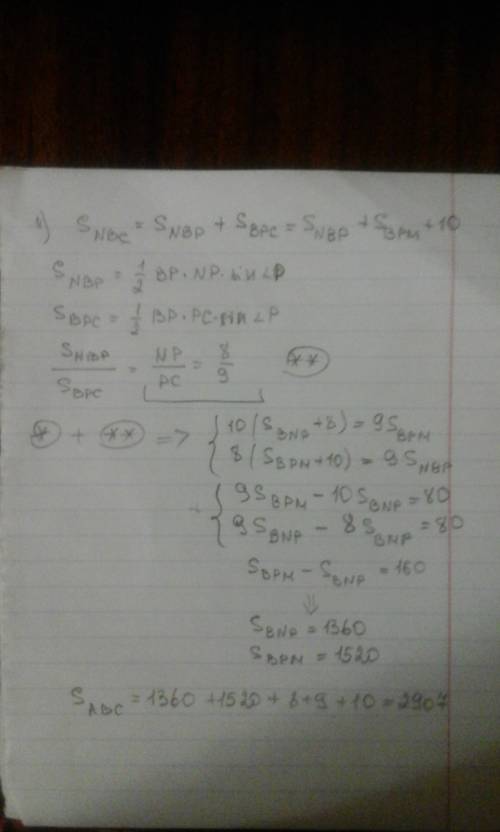 1) S_NBC = S_NBP + S_BPC = S_NBP + S_BPM + 10
S_NBP = 1/2 BP · NP · sin ∠P
S_BPC = 1/2 BP · PC · sin ∠P
S_NBP / S_BPC = NP / PC = 8 / 9 (**)
(*) + (**) => { 10 (S_BNP + 8) = 9 S_BPM
8 (S_BPM + 10) = 9 S_NBP
+ { 9 S_BPM - 10 S_BNP = 80
9 S_BNP - 8 S_BNP = 80
S_BPM - S_BNP = 160
⇓
S_BNP = 1360
S_BPM = 1520
S_ABC = 1360 + 1520 + 8 + 9 + 10 = 2907